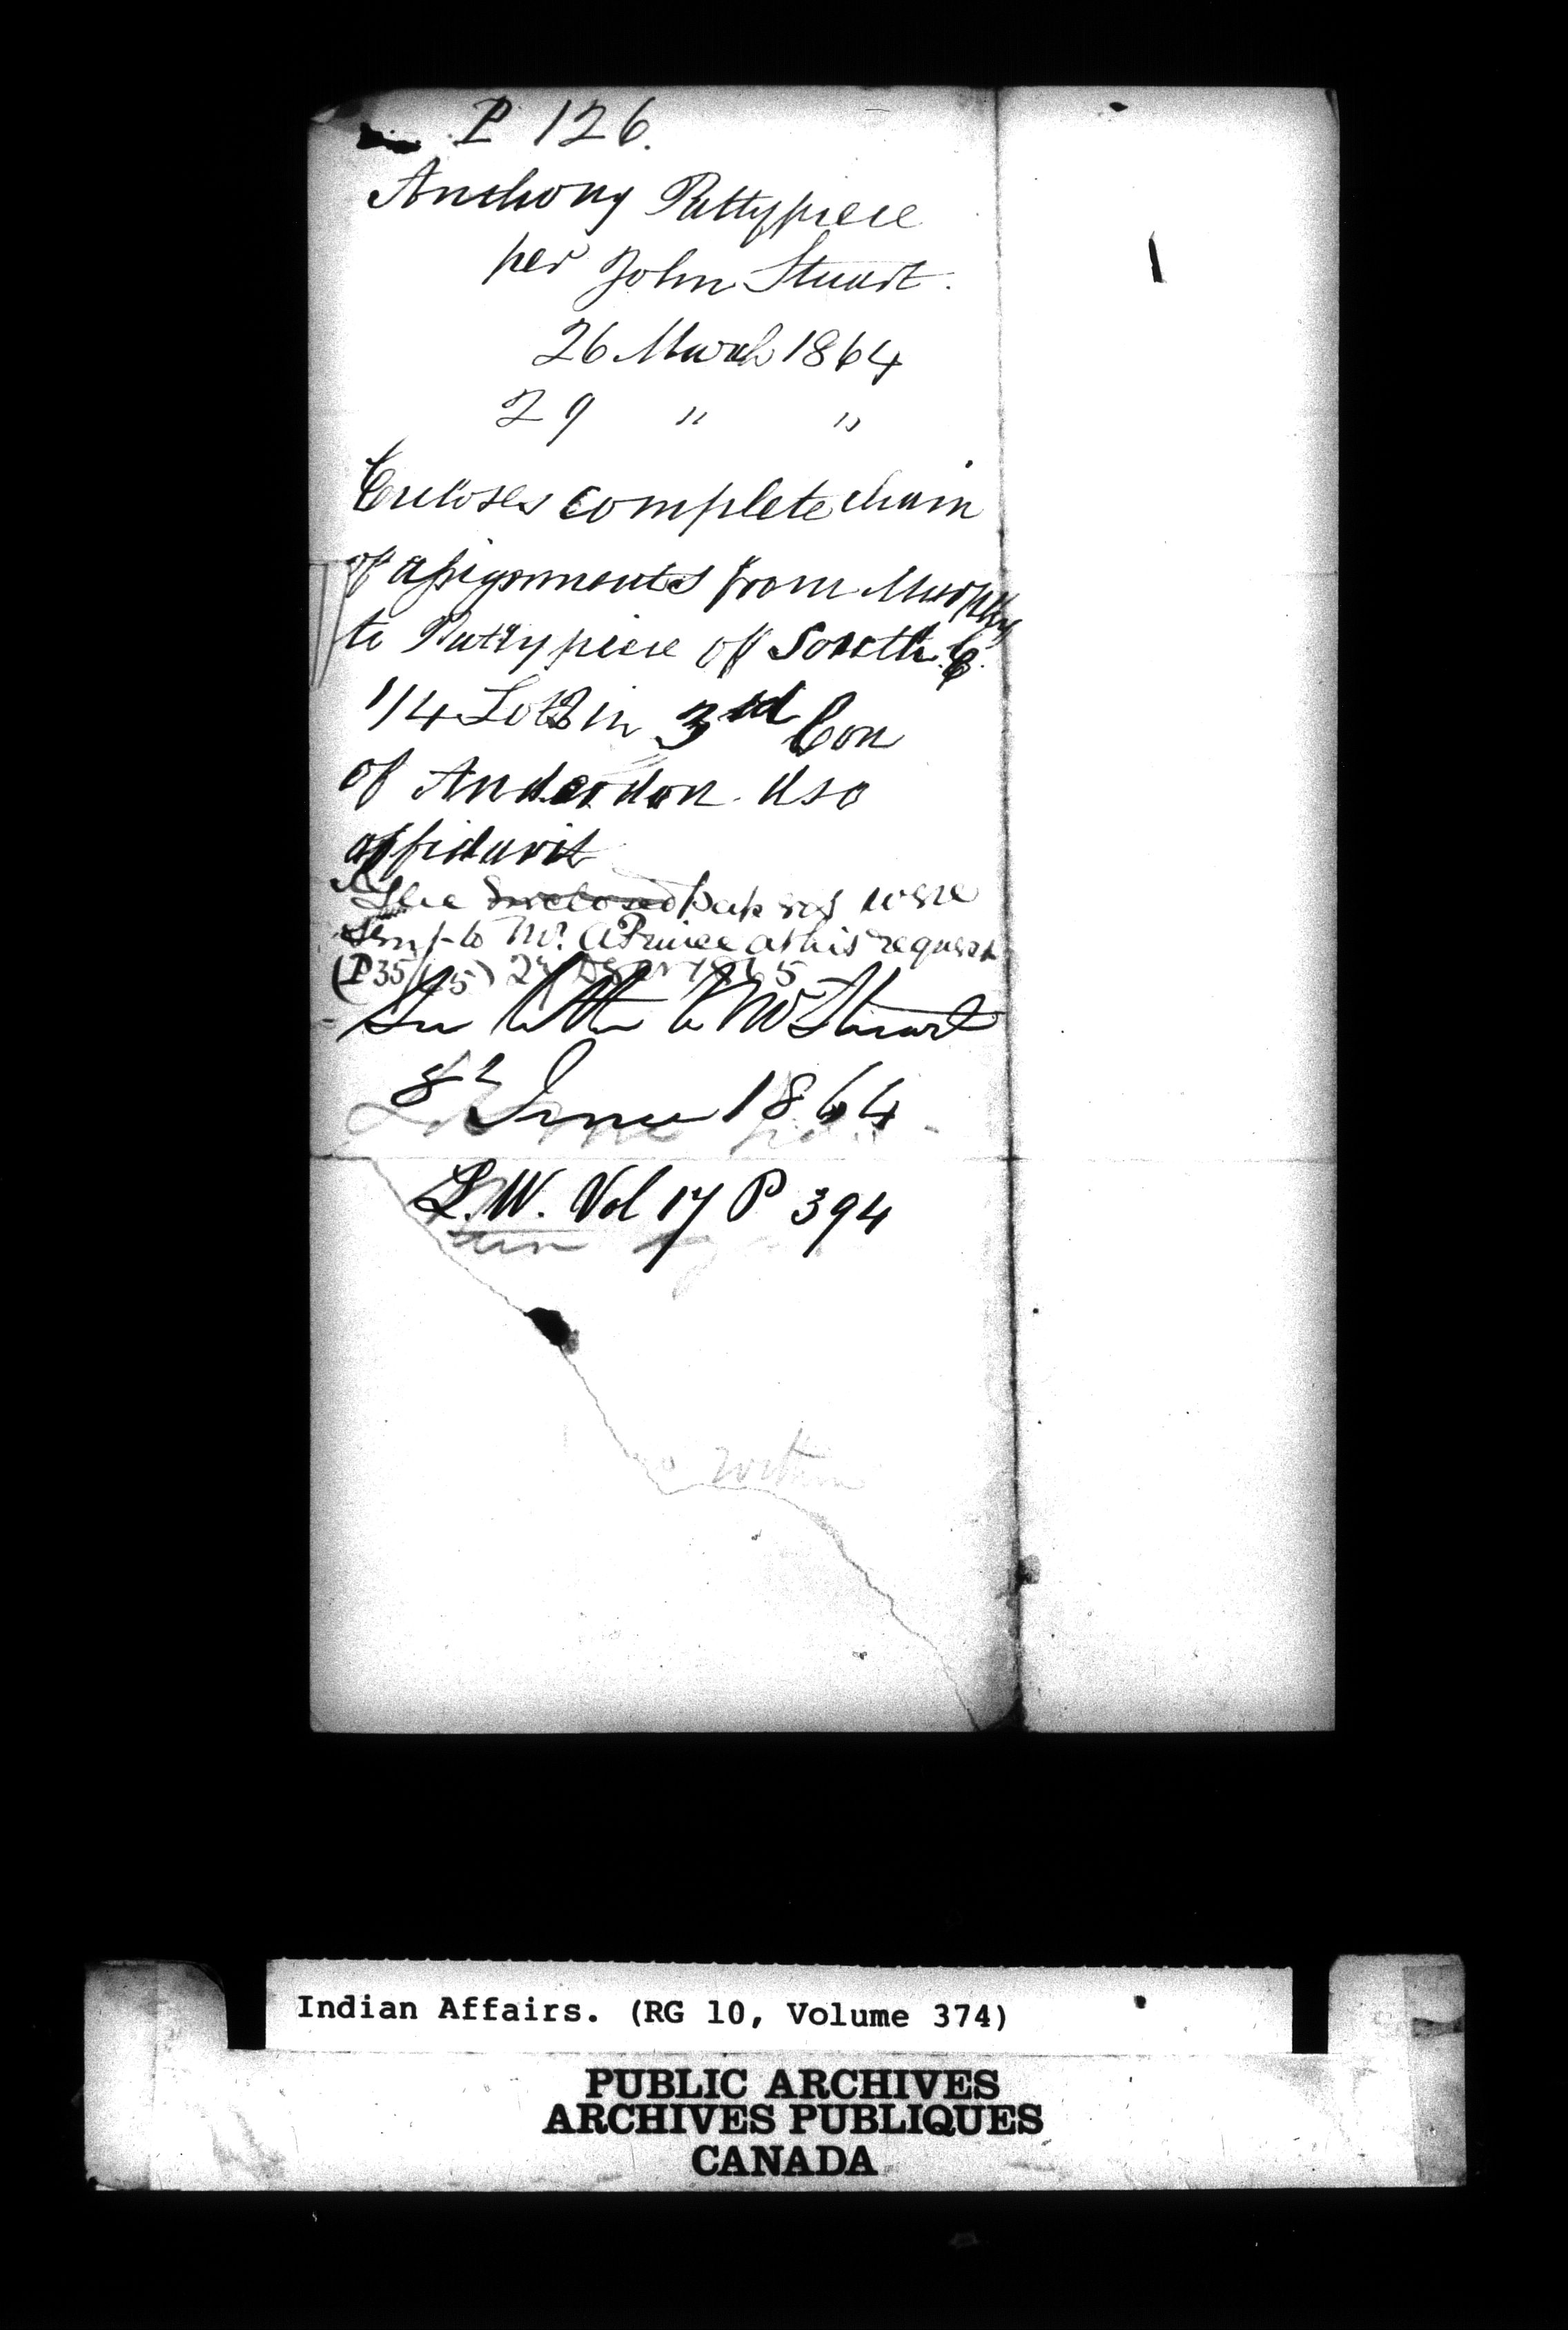 P 126.
Anthony Pattypiece
per John Stuart.
26 March 1864
29 " "
Encloses complete chain
of assignments from Murphy
to Pattypiece of South E.
1/4 Lot 2 in 3rd Con
of Anderdon also
affidavit
The Enclosed papers were
sent to Mr. A Prince at his request
(P35/65) 1865
See letter to Mr Stuart
8th June 1864
L.W. Vol 17 P 394
within
Indian Affairs. (RG 10, Volume 374)
PUBLIC ARCHIVES
ARCHIVES PUBLIQUES
CANADA